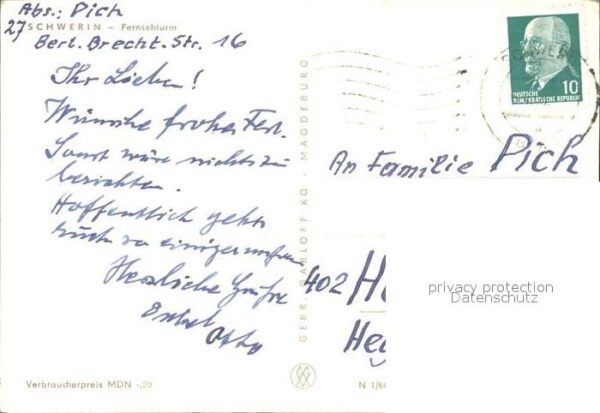 Abs.: Pich
SCHWERIN – Fernsehturm
27 Bert.Brecht.Str. 16
Ihr Lieben!
Wünsche frohes Fest.
Sonst wäre nichts zu
berichten.
Hoffentlich geht's
Euch so einigermaßen
Herzliche Grüße
Otto
Verbraucherpreis MDN -,20
GEBR. GARLOFF KG - MAGDEBURG
10
DEUTSCHE
DEMOKRATISCHE REPUBLIK
An Familie Pich
402 H
privacy protection
Datenschutz
He
N 1/6